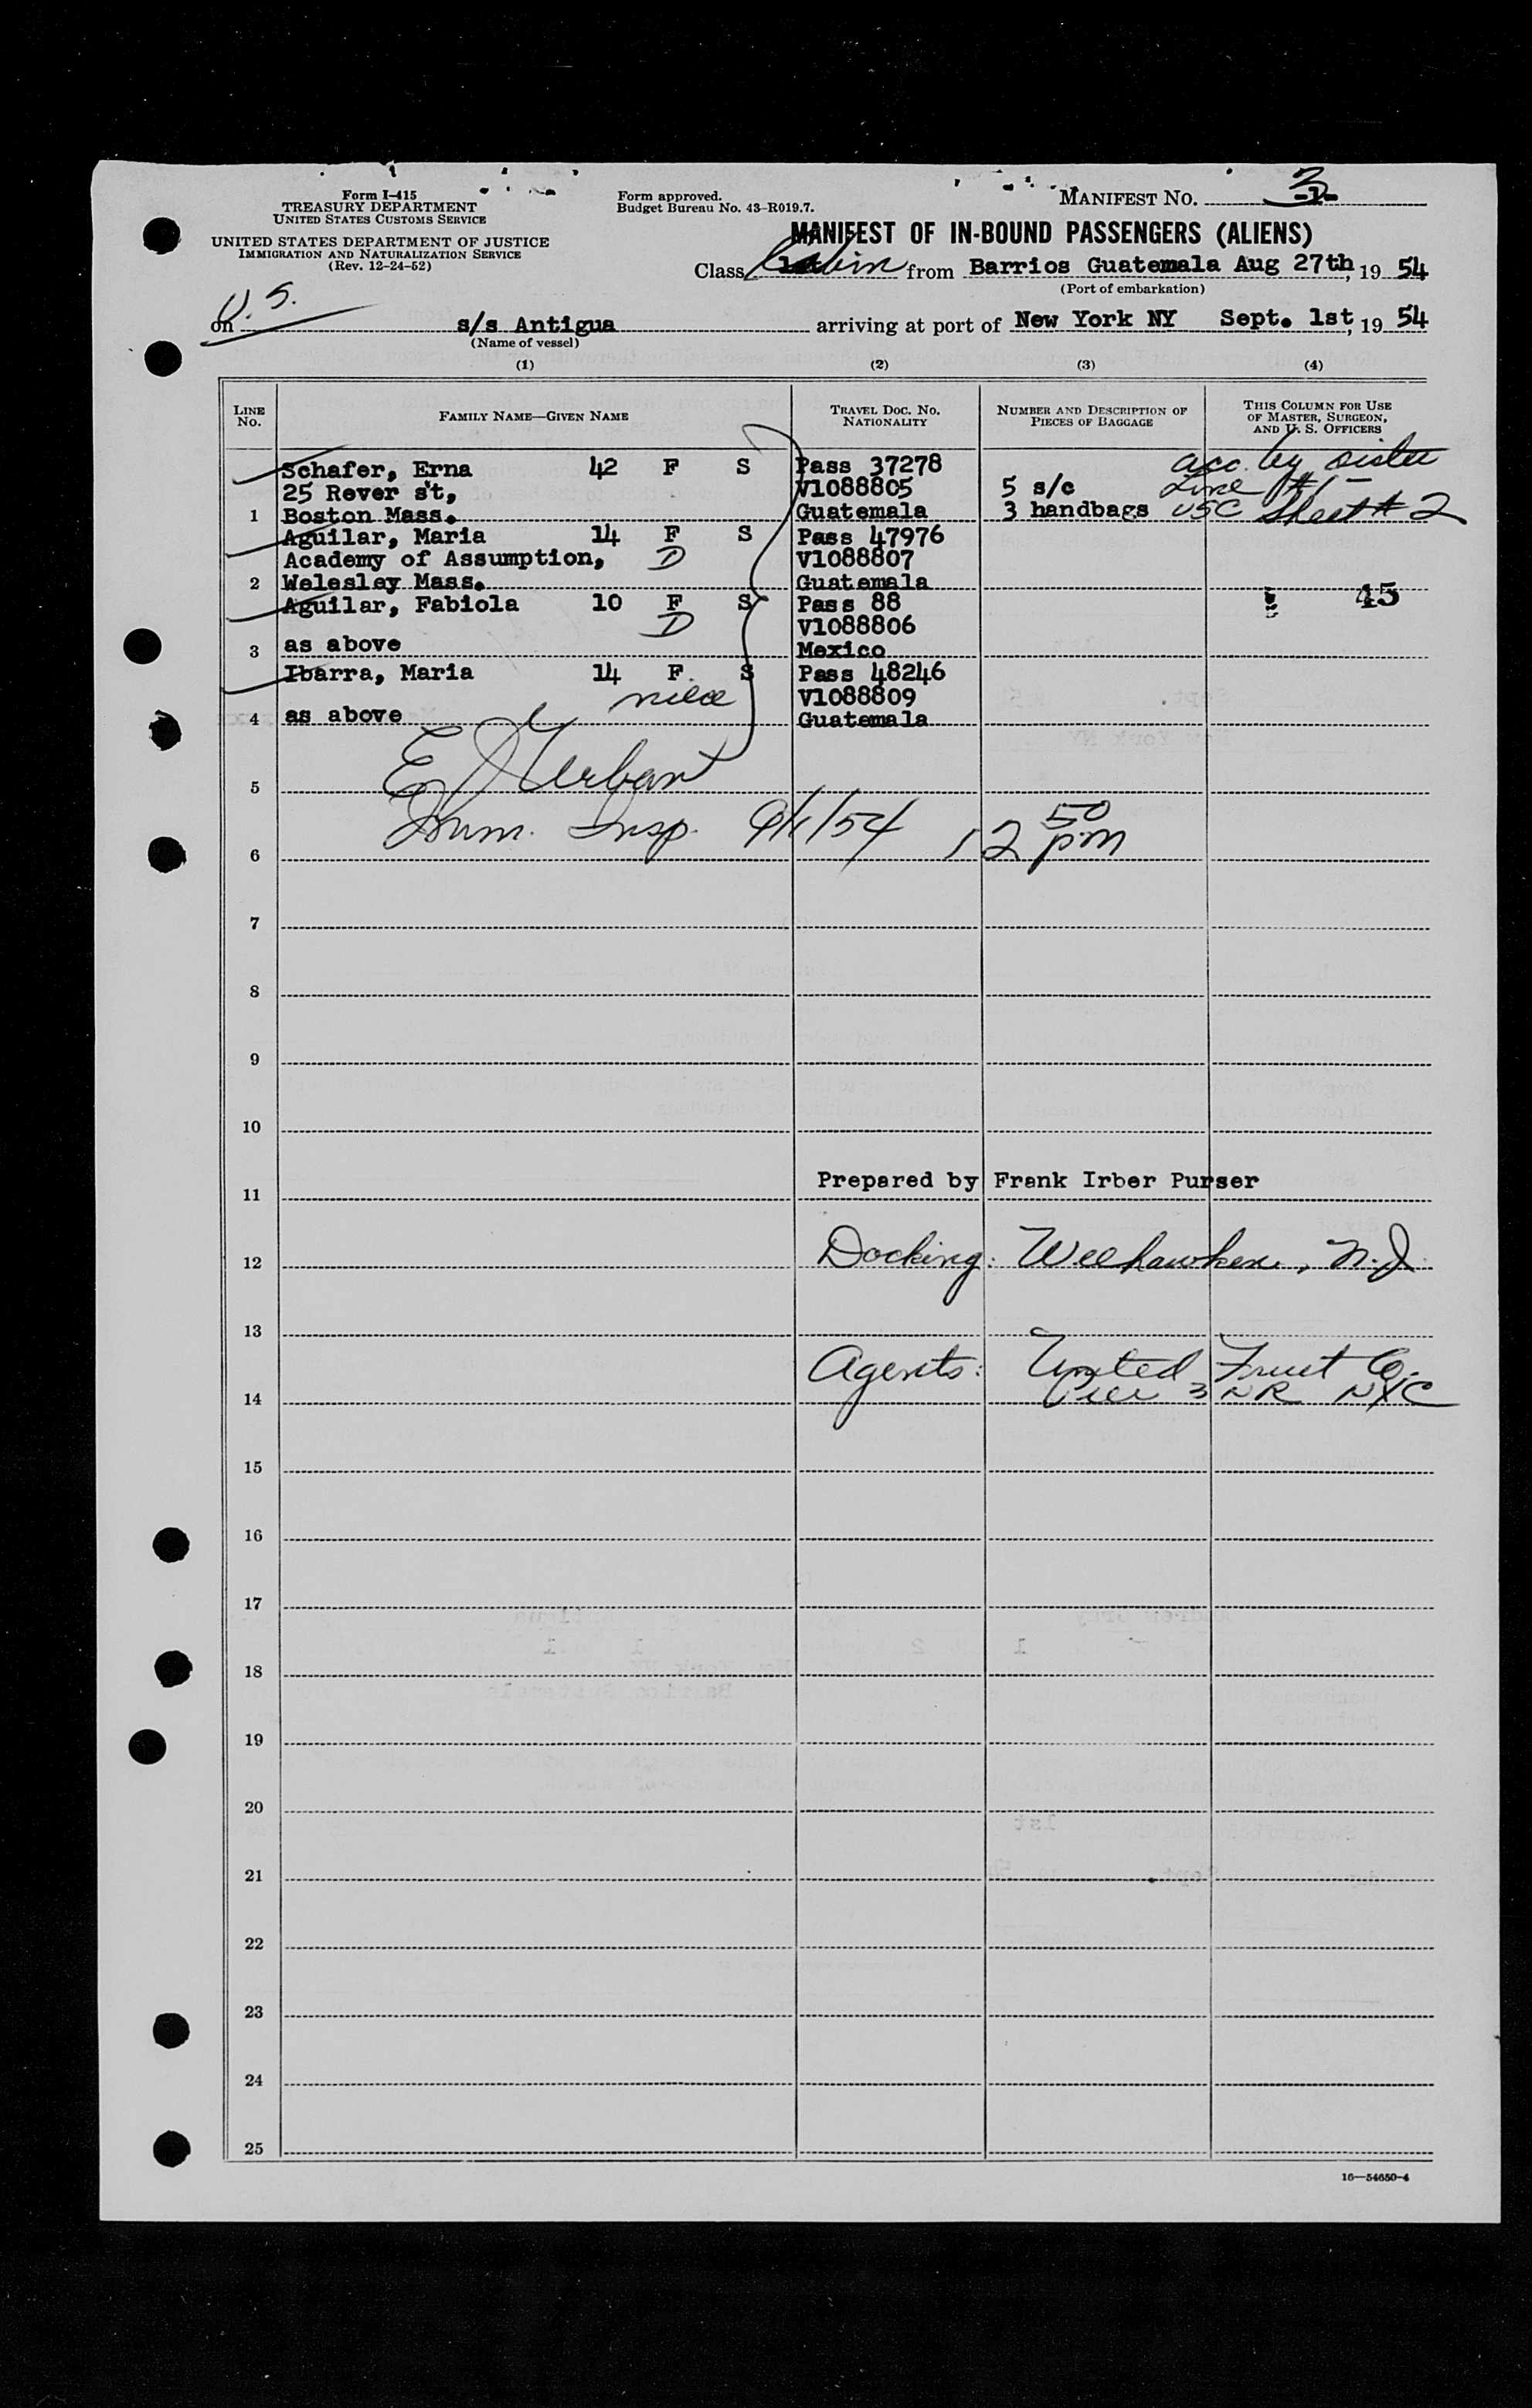 Form I-415
TREASURY DEPARTMENT
UNITED STATES CUSTOMS SERVICE
UNITED STATES DEPARTMENT OF JUSTICE
IMMIGRATION AND NATURALIZATION SERVICE
(Rev. 12-24-52)
Form approved.
Budget Bureau No. 43-R019.7.
MANIFEST No. 3
MANIFEST OF IN-BOUND PASSENGERS (ALIENS)
Class Cabin from Barrios Guatemala Aug 27th, 19 54
(Port of embarkation)
U.S.
on s/s Antigua arriving at port of New York NY Sept. 1st, 19 54
(Name of vessel)
(1) (2) (3) (4)
LINE No. FAMILY NAME—GIVEN NAME TRAVEL DOC. NO. NATIONALITY NUMBER AND DESCRIPTION OF PIECES OF BAGGAGE THIS COLUMN FOR USE OF MASTER, SURGEON, AND U. S. OFFICERS
Schafer, Erna 42 F S Pass 37278 acc. by sister
25 Rever st, V1088805 5 s/c Line #1-
1 Boston Mass. Guatemala 3 handbags USC Sheet # 2
Aguilar, Maria 14 F S Pass 47976
Academy of Assumption, D V1088807
2 Welesley Mass. Guatemala
Aguilar, Fabiola 10 F S Pass 88 45
D V1088806
3 as above Mexico
Ibarra, Maria 14 F. S Pass 48246
niece V1088809
4 as above Guatemala
5 E J Urban
6 Imm. Insp. 9/1/54 12 50 pm
7
8
9
10
11 Prepared by Frank Irber Purser
12 Docking: Weehawken, N.J.
13
Agents: United Fruit Co.
14 Pier 3 NR NYC
15
16
17
18
19
20
21
22
23
24
25
16—54650-4